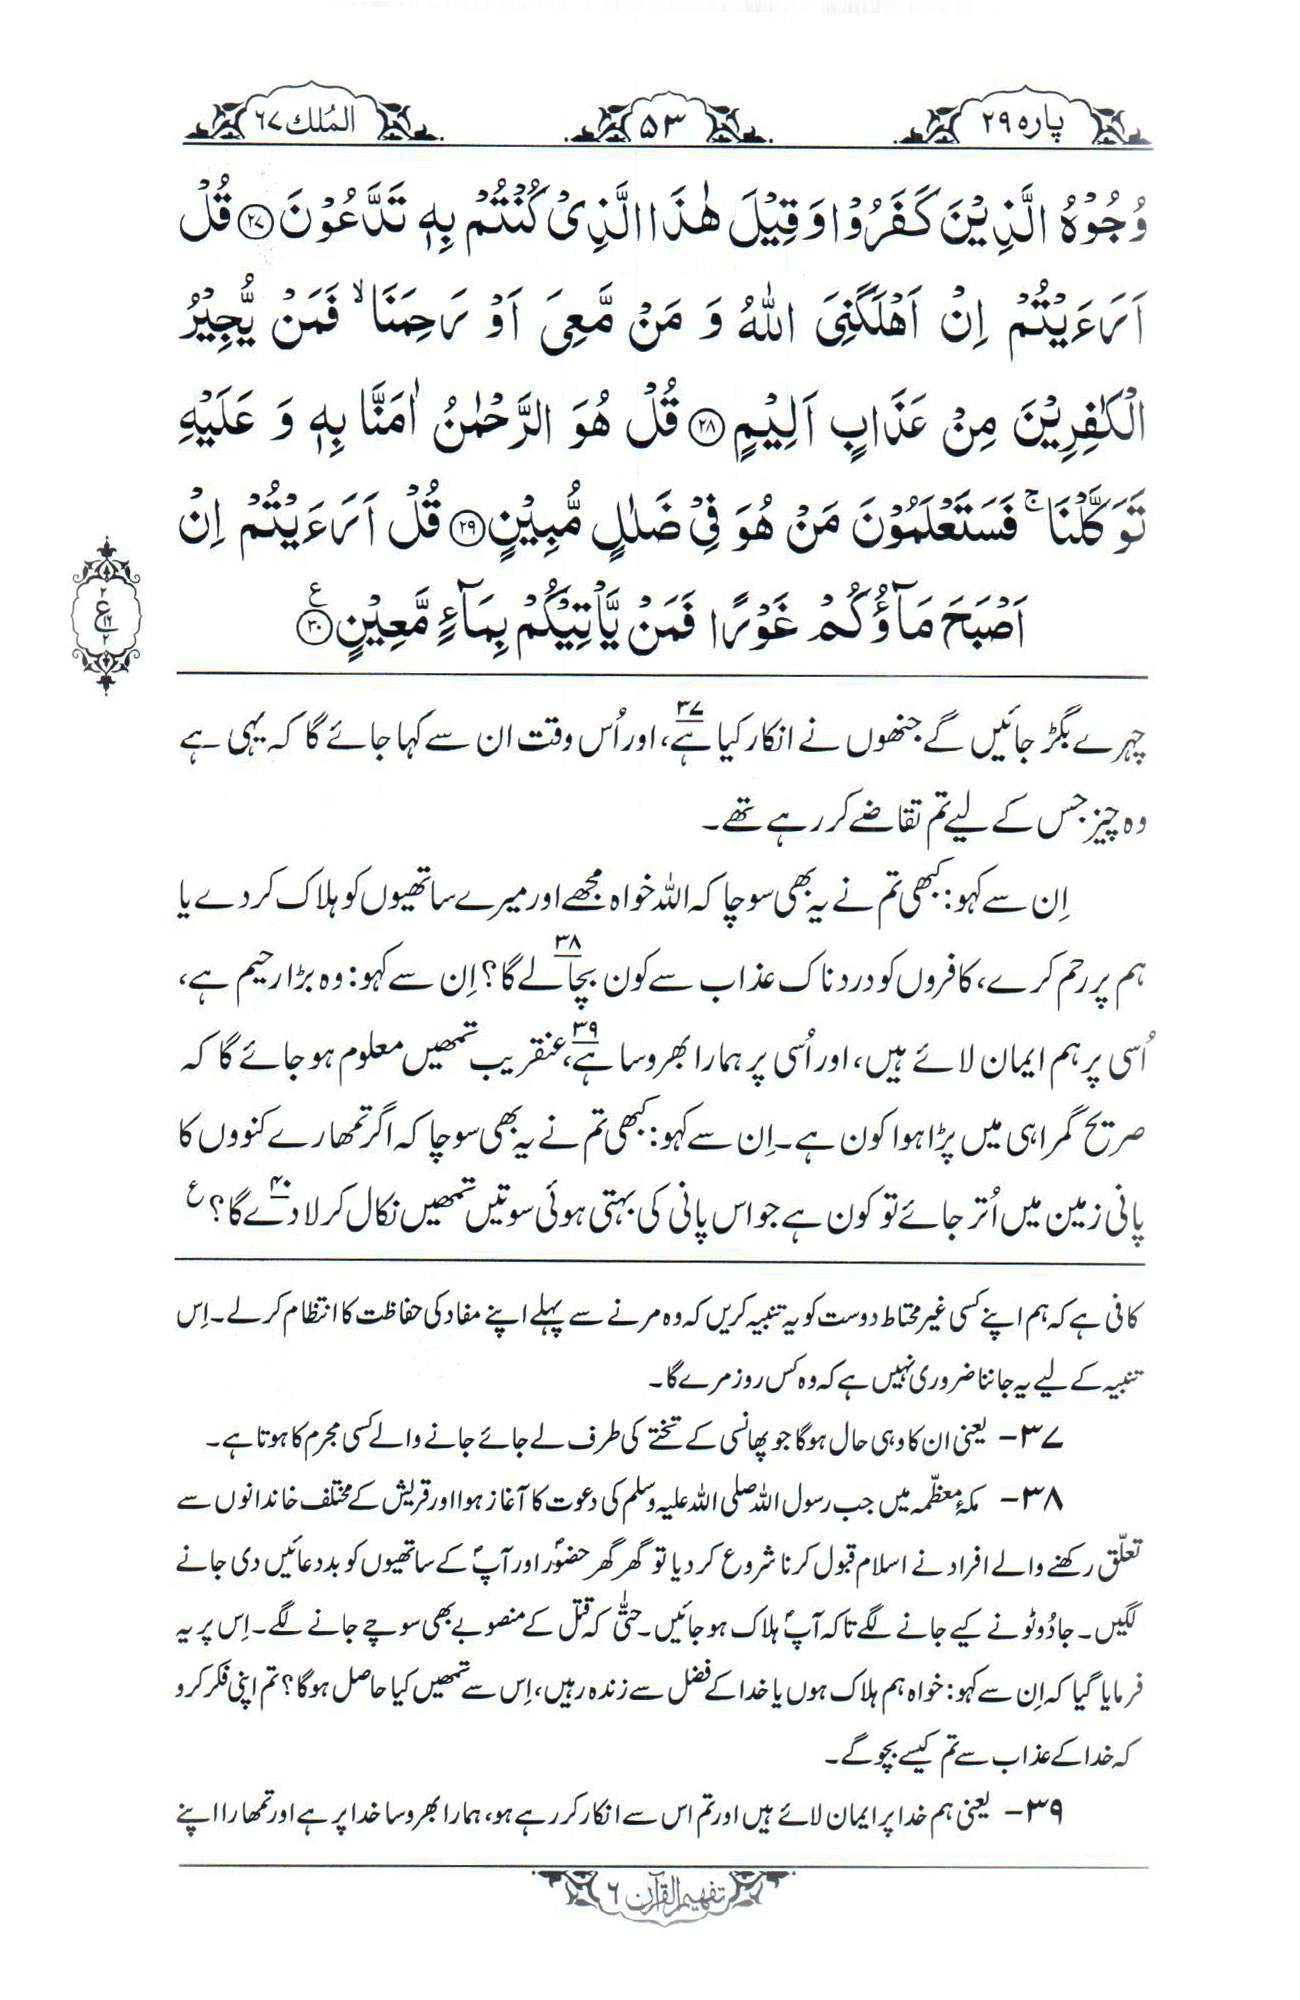 پارہ ۲۹
۵۳
الملک ۶۷
وُجُوۡہُ الَّذِیۡنَ کَفَرُوۡا وَ قِیۡلَ ہٰذَا الَّذِیۡ کُنۡتُمۡ بِہٖ تَدَّعُوۡنَ ﴿۲۷﴾ قُلۡ
اَرَءَیۡتُمۡ اِنۡ اَہۡلَکَنِیَ اللّٰہُ وَ مَنۡ مَّعِیَ اَوۡ رَحِمَنَا ۙ فَمَنۡ یُّجِیۡرُ
الۡکٰفِرِیۡنَ مِنۡ عَذَابٍ اَلِیۡمٍ ﴿۲۸﴾ قُلۡ ہُوَ الرَّحۡمٰنُ اٰمَنَّا بِہٖ وَ عَلَیۡہِ
تَوَکَّلۡنَا ۚ فَسَتَعۡلَمُوۡنَ مَنۡ ہُوَ فِیۡ ضَلٰلٍ مُّبِیۡنٍ ﴿۲۹﴾ قُلۡ اَرَءَیۡتُمۡ اِنۡ
اَصۡبَحَ مَآؤُکُمۡ غَوۡرًا فَمَنۡ یَّاۡتِیۡکُمۡ بِمَآءٍ مَّعِیۡنٍ ﴿۳۰﴾ ع
۲ ع ۱۲ ۲
چہرے بگڑ جائیں گے جنھوں نے انکار کیا ہے۳۷، اور اُس وقت ان سے کہا جائے گا کہ یہی ہے
وہ چیز جس کے لیے تم تقاضے کر رہے تھے۔
اِن سے کہو: کبھی تم نے یہ بھی سوچا کہ اللہ خواہ مجھے اور میرے ساتھیوں کو ہلاک کر دے یا
ہم پر رحم کرے، کافروں کو دردناک عذاب سے کون بچا۳۸ لے گا؟ اِن سے کہو: وہ بڑا رحیم ہے،
اُسی پر ہم ایمان لائے ہیں، اور اُسی پر ہمارا بھروسا ہے۳۹، عنقریب تمھیں معلوم ہو جائے گا کہ
صریح گمراہی میں پڑا ہوا کون ہے۔ اِن سے کہو: کبھی تم نے یہ بھی سوچا کہ اگر تمھارے کنووں کا
پانی زمین میں اُتر جائے تو کون ہے جو اس پانی کی بہتی ہوئی سوتیں تمھیں نکال کر لا دے۴۰ گا؟ ع
کافی ہے کہ ہم اپنے کسی غیر محتاط دوست کو یہ تنبیہ کریں کہ وہ مرنے سے پہلے اپنے مفاد کی حفاظت کا انتظام کر لے۔ اِس
تنبیہ کے لیے یہ جاننا ضروری نہیں ہے کہ وہ کس روز مرے گا۔
۳۷– یعنی ان کا وہی حال ہوگا جو پھانسی کے تختے کی طرف لے جائے جانے والے کسی مجرم کا ہوتا ہے۔
۳۸– مکۂ معظّمہ میں جب رسول اللہ صلی اللہ علیہ وسلم کی دعوت کا آغاز ہوا اور قریش کے مختلف خاندانوں سے
تعلّق رکھنے والے افراد نے اسلام قبول کرنا شروع کر دیا تو گھر گھر حضورؐ اور آپؐ کے ساتھیوں کو بددعائیں دی جانے
لگیں۔ جادُو ٹونے کیے جانے لگے تاکہ آپؐ ہلاک ہو جائیں۔ حتّٰی کہ قتل کے منصوبے بھی سوچے جانے لگے۔ اِس پر یہ
فرمایا گیا کہ اِن سے کہو: خواہ ہم ہلاک ہوں یا خدا کے فضل سے زندہ رہیں، اِس سے تمھیں کیا حاصل ہوگا؟ تم اپنی فکر کرو
کہ خدا کے عذاب سے تم کیسے بچو گے۔
۳۹– یعنی ہم خدا پر ایمان لائے ہیں اور تم اس سے انکار کر رہے ہو، ہمارا بھروسا خدا پر ہے اور تمھارا اپنے
تفہیم القرآن ۶